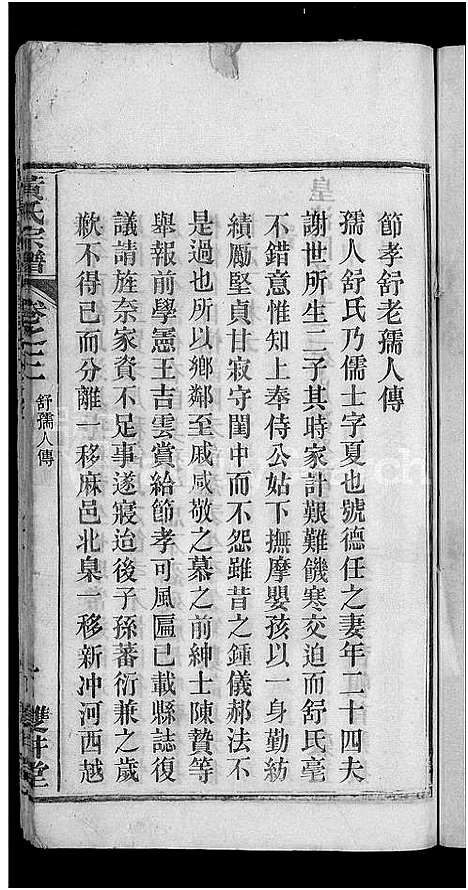 節孝舒老孺人傳
孺人舒氏乃儒士字夏也號德任之妻年二十四夫
謝世所生二子其時家計艱難饑寒交迫而舒氏毫
不錯意惟知上奉侍公姑下撫摩嬰孩以一身勤紡
績勵堅貞甘寂守閨中而不怨雖昔之鍾儀郝法不
是過也所以鄉鄰至戚咸敬之慕之前紳士陳贊等
舉報前學憲王吉雲賞給節孝可風匾已載縣誌復
議請旌奈家資不足事遂寢迨後子孫蕃衍兼之歲
歉不得已而分離一移麻邑北梟一移新冲河西越
黃氏宗譜
卷之三
舒孺人傳
雙井堂